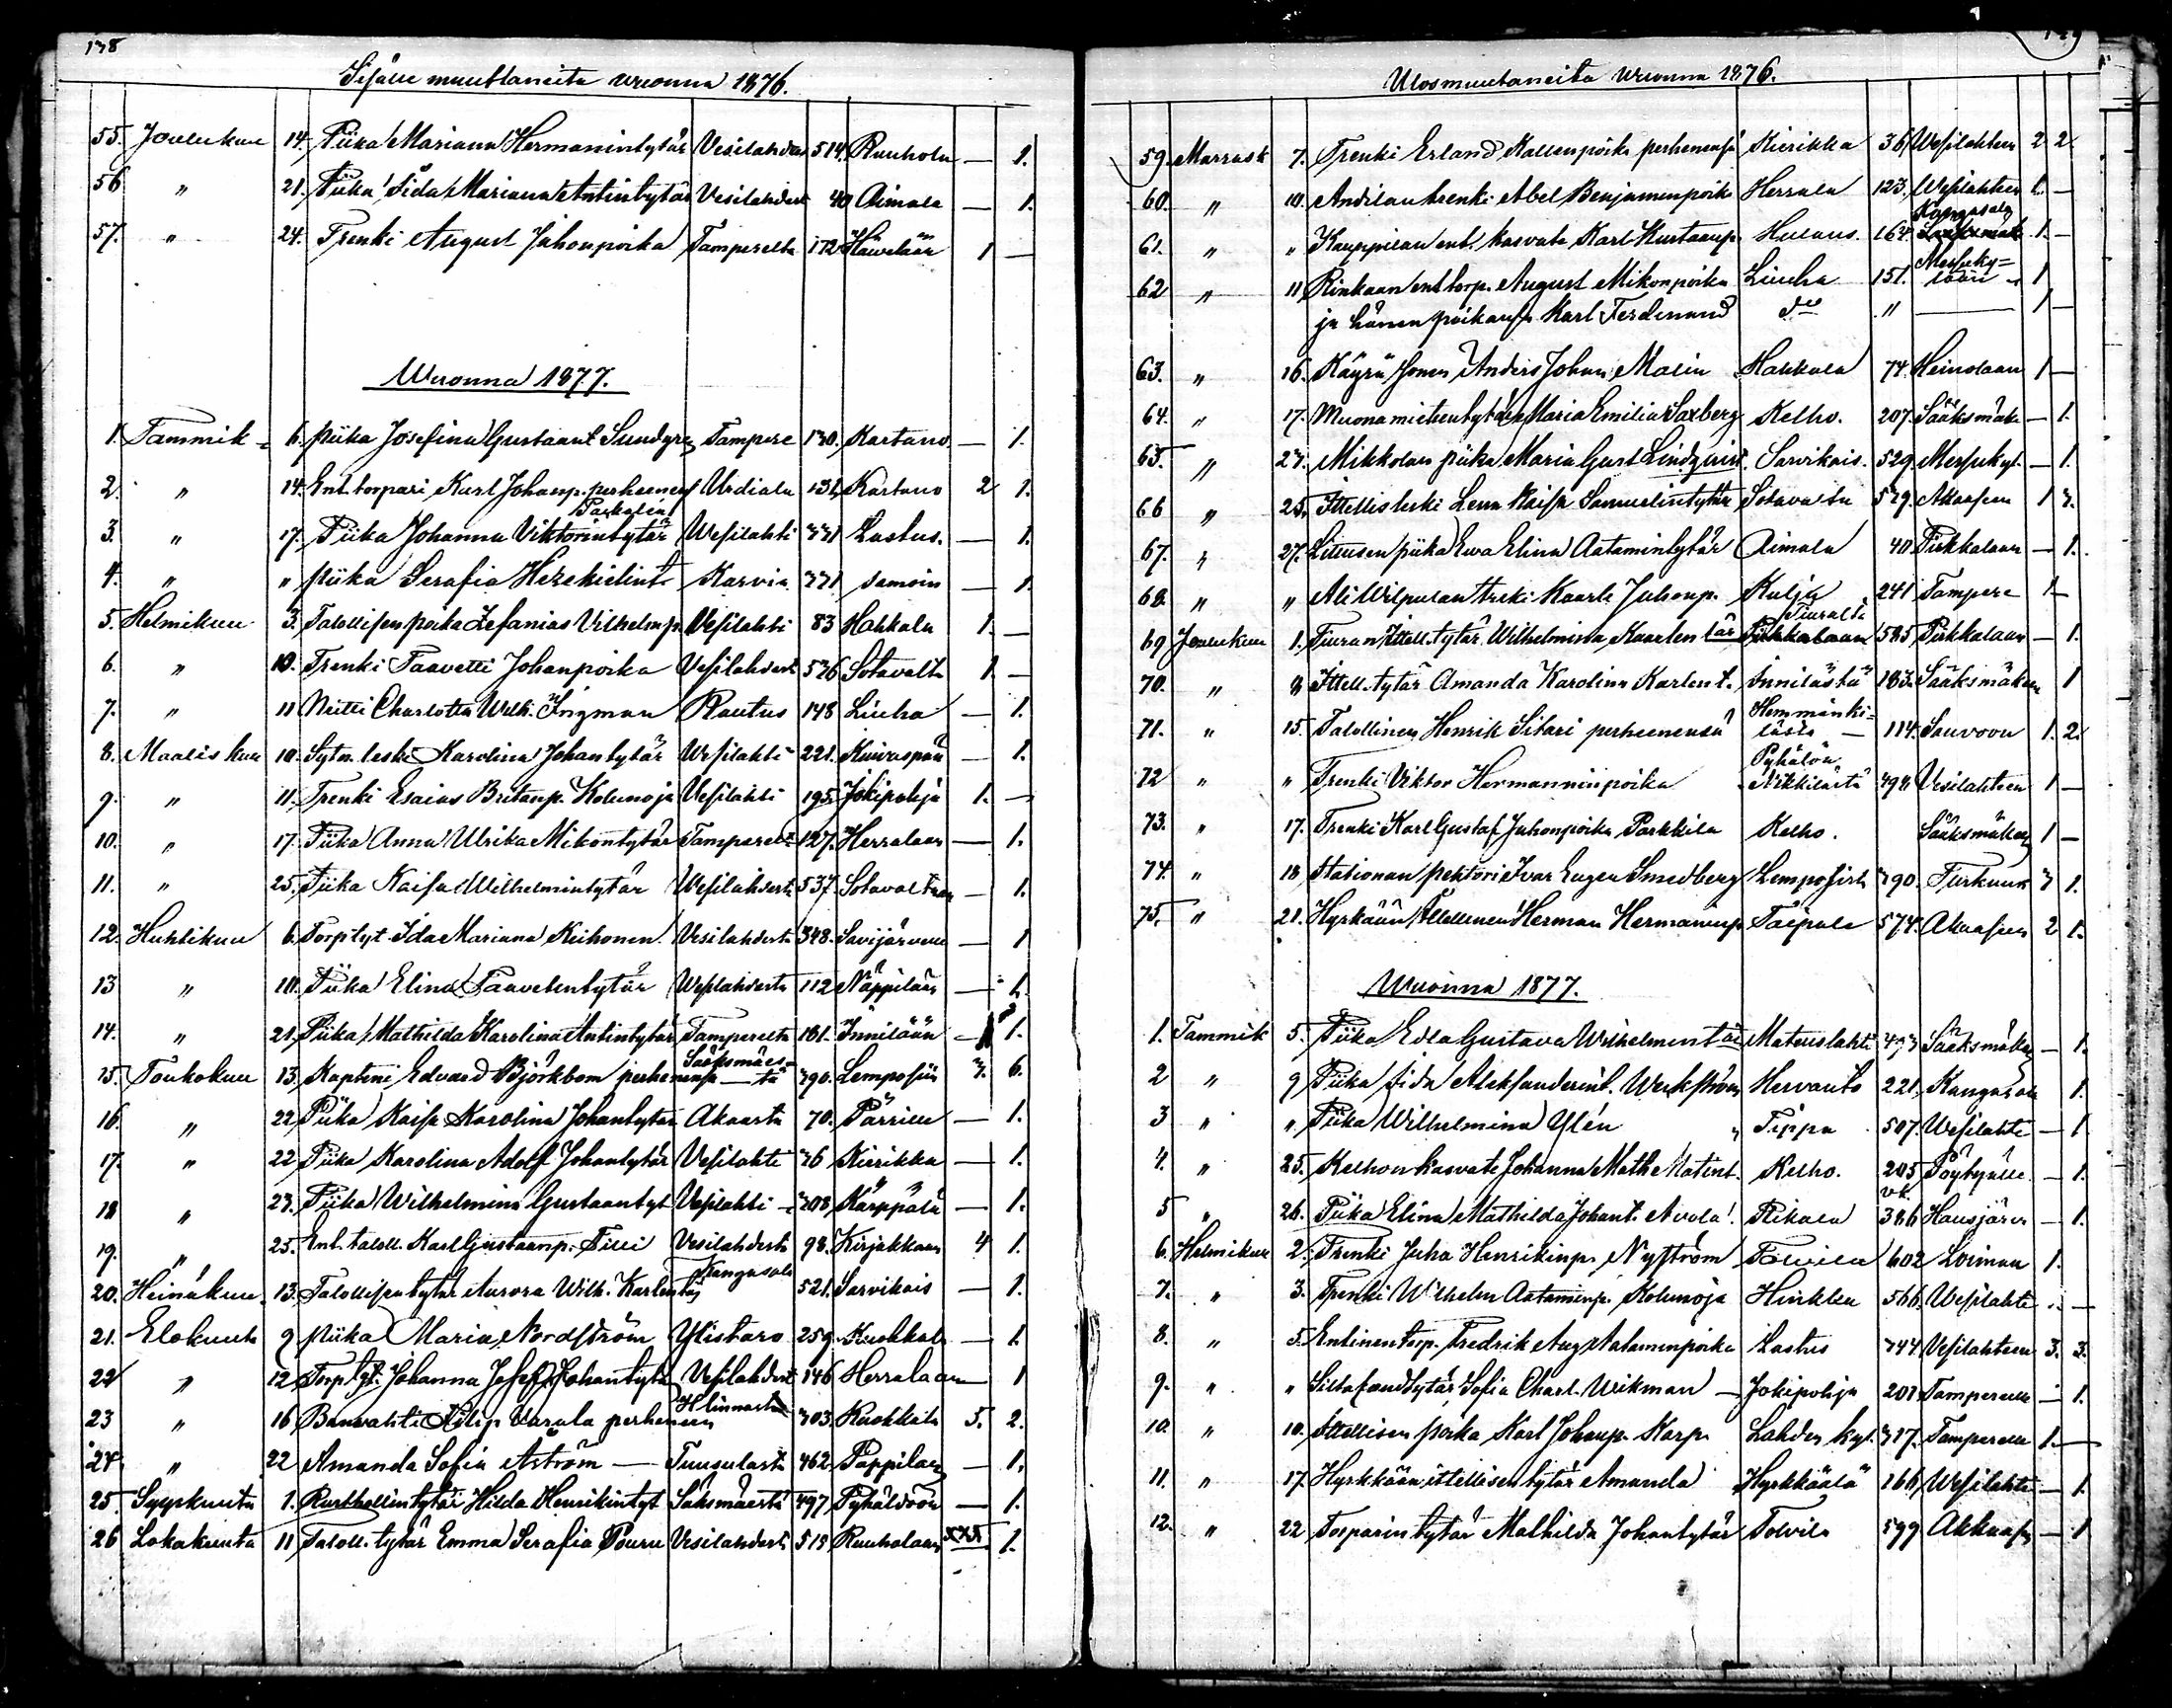 138
Sisälle muuttaneita vuonna 1876.
55. Joulukuu 14. Piika Mariana Hermanintytär Vesilahdes 514. Ruuhola — 1.
56 " 21. Piika Iida Mariana Antintytär Vesilahdest 40 Aimala — 1.
57. " 24. Trenki August Juhonpoika Tamperelta 172 1 —
Wuonna 1877.
1. Tammik 6. piika Josefina Gustaant Sundgren Tampere 130. Kartano — 1.
2. " 14. Ent. torpari Karl Johanp. perheenens Urdiala 131, Kartano 2 1.
3. " 17. Piika Johanna Viktorintytär Wesilahti 331 Lastus. — 1.
4. " " piika Serafia Hezekielint. Karvia 331 samoin — 1.
5. Helmikuu 3. Talollisen poika Zefanias Vilhelmp. Vesilahti 83 Hakkala 1. —
6. " 10. Trenki Taavetti Johanpoika Vesilahdest 526 Sotavalta 1. —
7. " 11 Neitti Charlotta Wilh. Ingman Rautus 148 Liuha — 1.
8. Maaliskuu 10. Sytn. leski Karolina Johantytär Wesilahti 221. Kuivaspää — 1.
9. " 11. Trenki Esaias Britanp. Kolunoja Vesilahti 195. Jokipohja 1. —
10. " 17. Piika Anna Ulrika Mikontytär Tamperelt 127. Herralaan — 1.
11. " 25. Piika Kaisa Wilhelmintytär Wesilahdest. 537. Sotavaltaan — 1.
12. Huhtikuu 6. Torp. tyt. Ida Mariana Keihonen Vesilahdesta 348. Savijärvelle — 1
13 " 10. Piika Elina Taavetintytär Wesilahdesta 112 Näppilään — 1.
14. " 21. Piika Mathilda Karolina Antintytär Tamperelta 181. Innilään — 1.
15. Toukokuu 13. Kapteni Edvard Björkbom perheinensa Sääksmäes-tä 390. Lemposiin 3. 6.
16. " 22 Piika Kaisa Karolina Johantytär Akaasta 70. Pärrille — 1.
17. " 22 Piika Karolina Adolf. Johantytär Vesilahti 36 Kierikka — 1.
18 " 23. Piika Wilhelmina Gustaantyt Vesilahti 208 Karppala — 1.
19. " 25. Ent. taloll. Karl Gustaanp. Filli Vesilahdesta 98. Kirjakkaan 4 1.
20. Heinäkuu 13. Talollisen tytär Aurora Wilh. Karlentytär Kangasala 521. Sarvikais — 1.
21. Elokuuta 9 piika Maria Nordström Ylistaro 259. Kuokkala — 1.
22 " 12 Torp. tyt. Johanna Josef. Johantytär Vesilahdest 146 Herralaan — 1
23 " 16 Banvahti Filip Varala perheineen 303. Kuokkala 5. 2.
24. " 22 Amanda Sofia Åström — Tuusulasta 462 Pappilaan — 1.
25. Syyskuuta 1. Rusthollin tytär Hilda Henrikintyt Sääksmäestä 497 Pyhältöön — 1.
26 Lokakuuta 11 Taloll. tytär Emma Serafia Pouru Vesilahdesta 515 Ruuholaan 1.
Ulosmuutaneita Wuonna 1876.
59. Marrask 7. Trenki Erland Kallenpoika perhenensä Kierikka 36 Wesilahteen 2 2
60. " 10. Andilan trenki Abel Benjaminpoika Herrala 123. Wesilahteen 1. —
61. " " Kauppilan ent. kasvate Karl Kustaanp. Hulaus. 164. Kangasala 1. —
62 " 11 Rinkaan ent torp. August Mikonpoika Liuha 151. Messuky=lään 1
ja hänen poikansa Karl Ferdinand do " — 1 —
63. " 16. Käyrä Jonen Anders Johan Malin Hakkala 74. Heinolaan 1 —
64. " 17. Muonamiehen tytär Maria Emilia Saxberg Kelho. 207. Sääksmäke — 1.
65. " 23. Mikkolan piika Maria Gust Lindqvist. Sarvikais. 529 Messukyl. — 1.
66 " 25. Ittellis leski Leena Kaisa Samuelintytär Sotavalta 539. Akaasen 1 3.
67. " 27. piika Ewa Elina Aatamintytär Aimala 40 Pirkkalaan — 1.
68. " " Ali Wilpusan trenki Kaarle Juhonp. Kulju 241 Tampere 1 —
69 Joulukuu 1. Tiuran Ittell. tytär Wilhelmina Kaarlentär Tiuralta 585 Pirkkalaan — 1.
70. " 8 Ittell. tytär Amanda Karolina Karlent. Innilästä 183. Sääksmäken 1
71. " 15. Talollinen Henrik Sitari perheenensä Hemminki=lästä — 114. Sauvoon 1. 2.
72 " " Trenki Viktor Hermanninpoika Pyhälön Nikkilästä 494 Vesilahteen 1 —
73. " 17. Trenki Karl Gustaf Juhonpoika Parkkila Kelho. Sääksmäken 1 —
74. " 18 Stationan Ivar Eugen Smedberg Lemposista 390. Turkuun 3 1.
75. " 21. Hyrkään Ittellinen Herman Hermaninp Taipale 574. Akaasen 2 1.
Wuonna 1877.
1. Tammik 5. Piika Edla Gustava Wilhelmintär Mateuslahti 493 Sääksmäken — 1.
2 " 9 Piika Iida Aleksanderint. Werkström Hervanto 221. Kangasala 1.
3 " " Piika Wilhelmina Ylén Tippa 507. Wesilahti — 1
4. " 25. Kelhon kasvate Johanna Math Matint. Kelho. 205 Pöytyälle — 1.
5 " 26. Piika Elina Mathilda Johant. Avola. Rikala vk. 386 Hausjärv — 1.
6. Helmikuu 2. Trenki Juha Henrikinp. Nyström Tolvila 602 Loimaa 1.
7. " 3. Trenki Wilhelm Aataminp. Kolunoja Hinkkla 566. Wesilahti —
8. " 5. Entinen torp. Fredrik Aug Aataminpoika Lastus 344. Vesilahteen 3. 3.
9. " " Siltafoudtytär Sofia Charl. Wikman — Jokipohja 201 Tamperelle 1.
10. " 10. Ittellisen poika Karl Johanp. Karp. Lahden kyl. 317. Tamperelle 1. —
11. " 17. Hyrkkään ittellisen tytär Amanda Hyrkkäälä 166 Wesilahti — 1.
12. " 22 Torparin tytär Mathilda Johantytär Tolvila 599 Akkaasen — 1